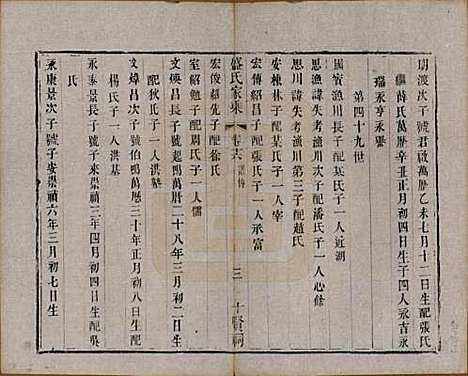 明渡次子號君啟萬歷乙未七月十二日生配張氏
繼薛氏萬歷辛丑正月初四日生子三人吉永
瑞永亨永張
第四十九世
國賓漁川長子配某氏子一人近湖
思川諱失考漁川次子配潘氏子一人心餘
思漁諱失考漁川第三子配趙氏
安槐林子配某氏子一人宰
宏傳紹昌子配張氏子一人承富
盛氏家乘
卷六
三
十賢祠
宏俊紹先子配徐氏
室紹勉子配周氏子一人儒
文煥昌長子號起鳴萬歷二十八年三月初二日生
配狄氏子一人洪塾
文煒昌次子號伯鳴萬歷三十年正月初八日生配
楊氏子一人洪基
永泰景長子號子來崇禎三年四月初四日生配吳
氏
永康景次子號子安崇禎六年三月初七日生